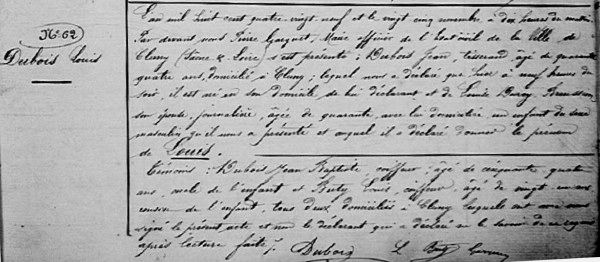 N° 62
Dubois Louis
L'an mil huit cent quatre vingt neuf et le vingt cinq novembre à dix heures du matin
Par devant nous Pierre Maire officier de l'état civil de la Ville de
Cluny (Saône & Loire) s'est présenté : Dubois Jean, tisserand âgé de quarante
quatre ans, domicilié à Cluny ; lequel nous a déclaré que hier à neuf heures du
soir, il est né en son domicile, de lui déclarant et de Louise
son épouse journalière, âgée de quarante, avec lui domiciliée un enfant du sexe
masculin qu'il nous a présenté et auquel il a déclaré donner le prénom
de Louis.
Témoins : Dubois Jean Baptiste, coiffeur, âgé de cinquante quatre
ans, oncle de l'enfant et Louis, coiffeur, âgé de vingt ans
cousin de l'enfant, tous deux domiciliés à Cluny lesquels ont avec nous
signé le présent acte et non le déclarant qui a déclaré ne le savoir de ce requis
après lecture faite /.